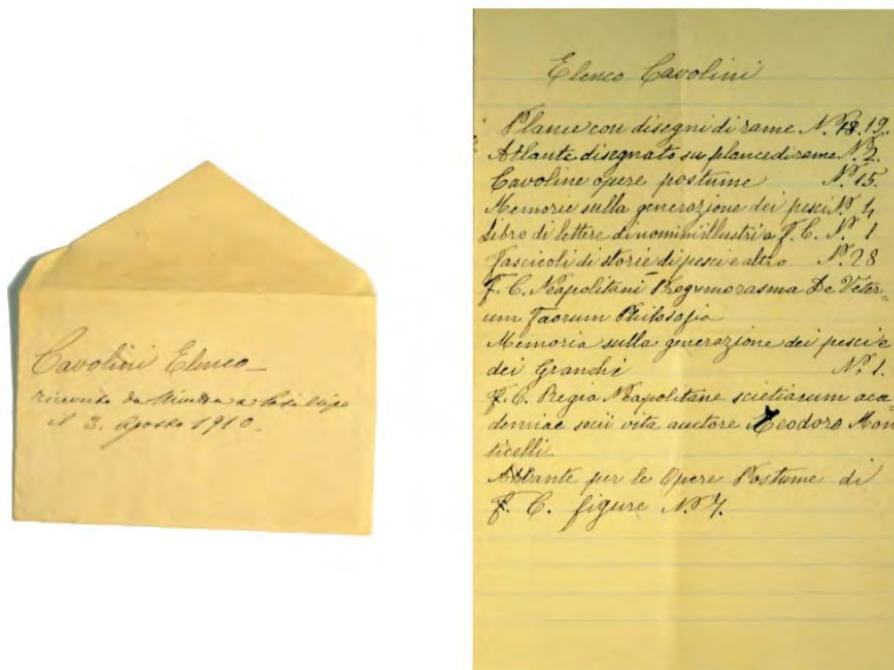 Cavolini Elenco
ricevuto da a Posilipo
il 3. Agosto 1910.
Elenco Cavolini
Plance con disegni di rame N. 19.
Atlante disegnato su plance di rame N. 2.
Cavoline opere postume N. 15.
Memorie sulla generazione dei pesci N. 4
Libro di lettere di uomini illustri a F. C. N. 1
Fascicoli di storie di pesci e altro N. 28
F. C. Neapolitani De Veter-
um Philosofia
Memoria sulla generazione dei pesci e
dei Granchi N. 1.
F. C. Regia Neapolitane scietiarum aca
demiae socii vita auctore Teodoro Mon
ticelli
Atlante per le Opere Postume di
F. C. figure N. 7.